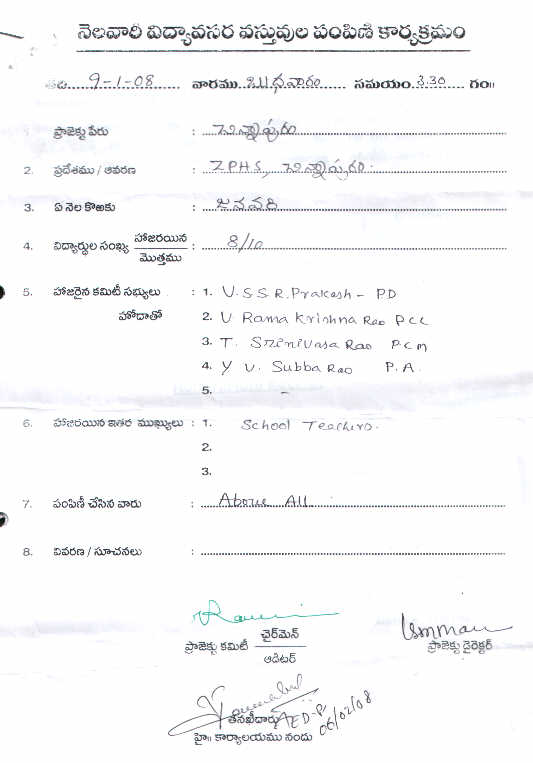 నెలవారి విద్యావసర వస్తువుల పంపిణి కార్యక్రమం
తేది. 9-1-08 వారము. బుధవారం సమయం. 3.30 గం॥
ప్రాజెక్టు పేరు : చిన్నాపురం
2. ప్రదేశము / ఆవరణ : ZPHS, చిన్నాపురం.
3. ఏ నెల కొఱకు : జనవరి
4. విద్యార్థుల సంఖ్య హాజరయిన / మొత్తము : 8/10
5. హాజరైన కమిటీ సభ్యులు : 1. V.S.S.R. Prakash - PD
హోదాతో 2. V Rama Krishna Rao PCC
3. T. Srinivasa Rao PCM
4. Y V. Subba Rao P.A.
5. -
6. హాజరయిన ఇతర ముఖ్యులు : 1. School Teachers.
2.
3.
7. పంపిణీ చేసిన వారు : Above All
8. వివరణ / సూచనలు :
చైర్‌మెన్
ప్రాజెక్టు కమిటీ
ఆడిటర్
ప్రాజెక్టు డైరెక్టర్
తనఖీదారు AED-P
హై॥ కార్యాలయము నందు 06/02/08